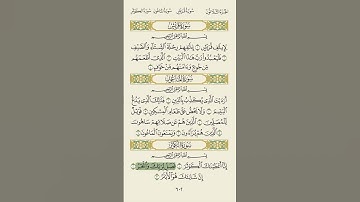 الجزء الثلاثون سورة قريش سورة الماعون سورة الكوثر
سورة قريش
بسم الله الرحمن الرحيم
لإيلاف قريش ١ إيلافهم رحلة الشتاء والصيف
٢ فليعبدوا رب هذا البيت ٣ الذي أطعمهم
من جوع وءامنهم من خوف ٤
سورة الماعون
بسم الله الرحمن الرحيم
أرءيت الذي يكذب بالدين ١ فذلك الذي يدع
اليتيم ٢ ولا يحض على طعام المسكين ٣ فويل
للمصلين ٤ الذين هم عن صلاتهم ساهون
٥ الذين هم يراءون ٦ ويمنعون الماعون ٧
سورة الكوثر
بسم الله الرحمن الرحيم
إنا أعطينك الكوثر ١ فصل لربك وانحر ٢
إن شانئك هو الأبتر ٣
٦٠٢